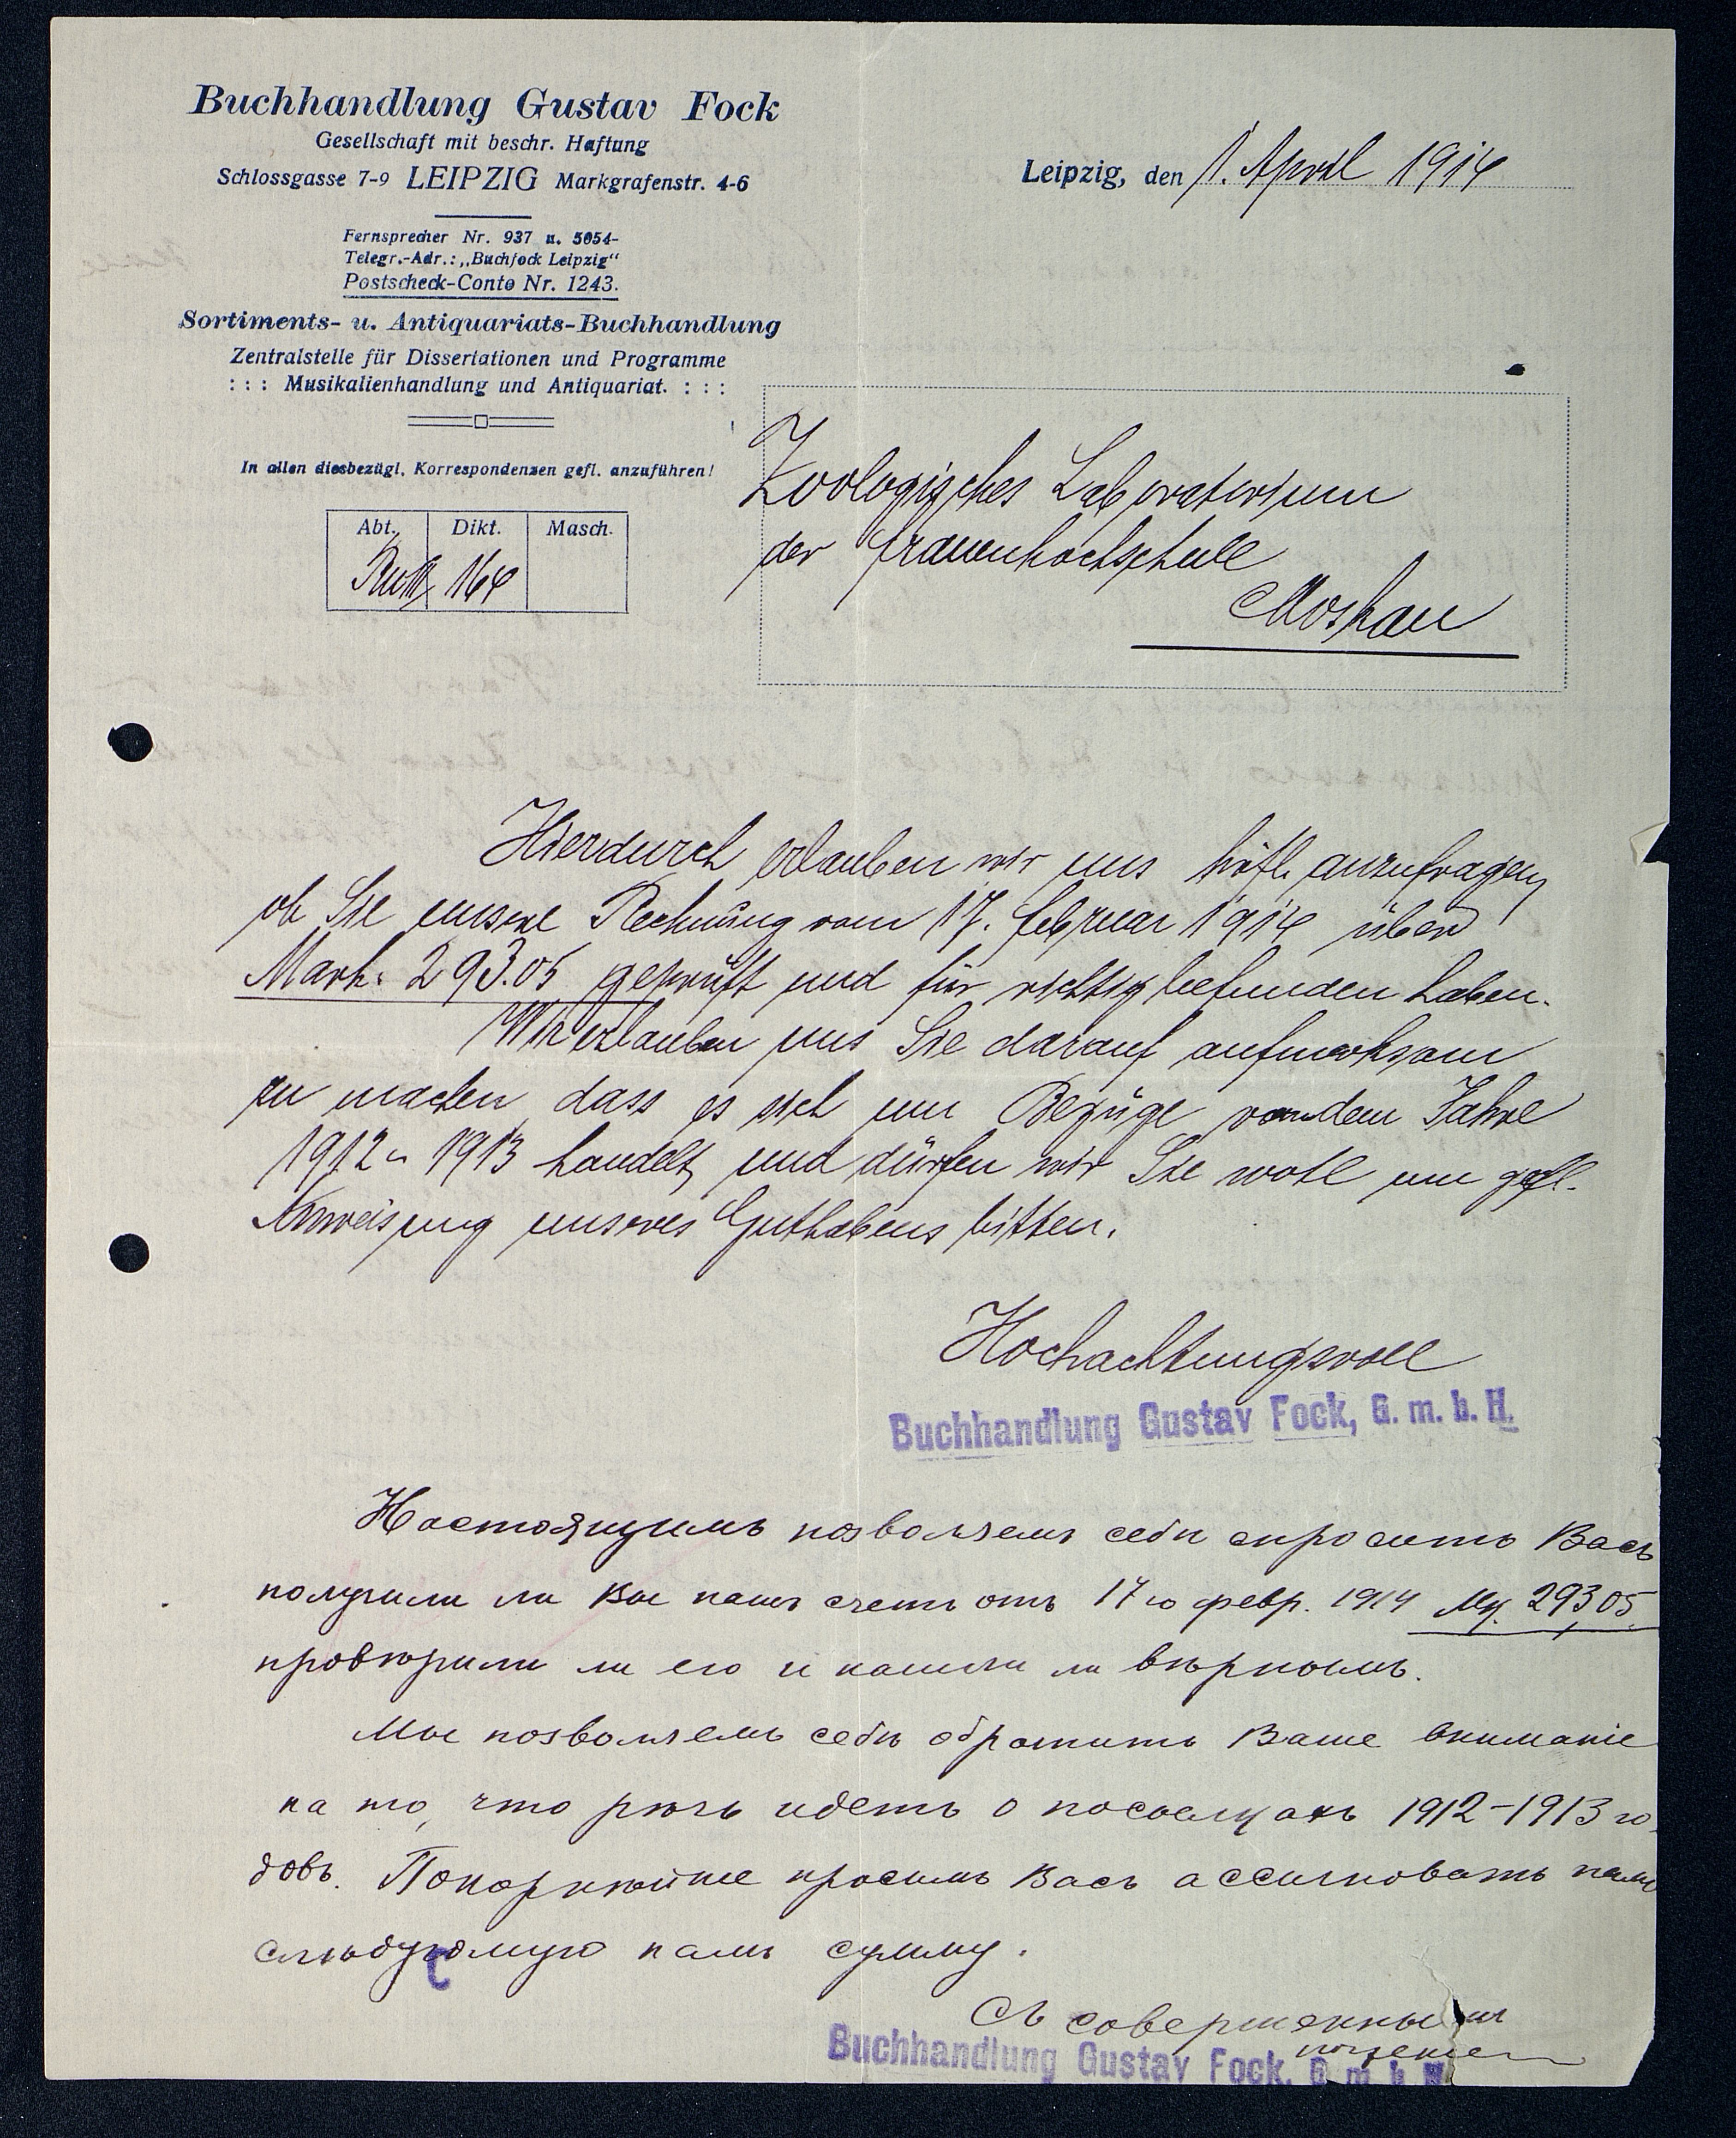 Buchhandlung Gustav Fock
Gesellschaft mit beschr. Haftung
Schlossgasse 7-9 LEIPZIG Markgrafenstr. 4-6
Fernsprecher Nr. 937 u. 5054-
Telegr.-Adr.: „Buchfock Leipzig“
Postscheck-Conto Nr. 1243.
Sortiments- u. Antiquariats-Buchhandlung
Zentralstelle für Dissertationen und Programme
: : : Musikalienhandlung und Antiquariat. : : :
In allen diesbezügl. Korrespondenzen gefl. anzuführen!
Abt. Dikt. Masch.
164
Leipzig, den 1. April 1914
Zoologisches Laboratorium
der Frauenhochschule
Moskau
Hierdurch erlauben wir uns höfl. anzufragen,
ob Sie unsere Rechnung vom 17. Februar 1914 über
Mark. 293.05 geprüft und für richtig befunden haben.
Wir erlauben uns Sie darauf aufmerksam
zu machen, dass es sich um Bezüge von dem Jahre
1912 u 1913 handelt, und dürfen wir Sie wohl um gefl.
Anweisung unseres Guthabens bitten.
Hochachtungsvoll
Buchhandlung Gustav Fock, G. m. b. H.
Настоящимъ позволяемъ себѣ спросить Васъ
получили ли Вы нашъ счетъ отъ 17го февр. 1914 Мк. 293,05
провѣрили ли его и нашли ли вѣрнымъ.
Мы позволяемъ себѣ обратить Ваше вниманіе
на то, что рѣчь идетъ о посылкахъ 1912-1913 го-
довъ. Покорнѣйше просимъ Васъ ассигновать намъ
слѣдуемую намъ сумму.
Съ совершеннымъ
почтеніем
Buchhandlung Gustav Fock, G. m. b. H.